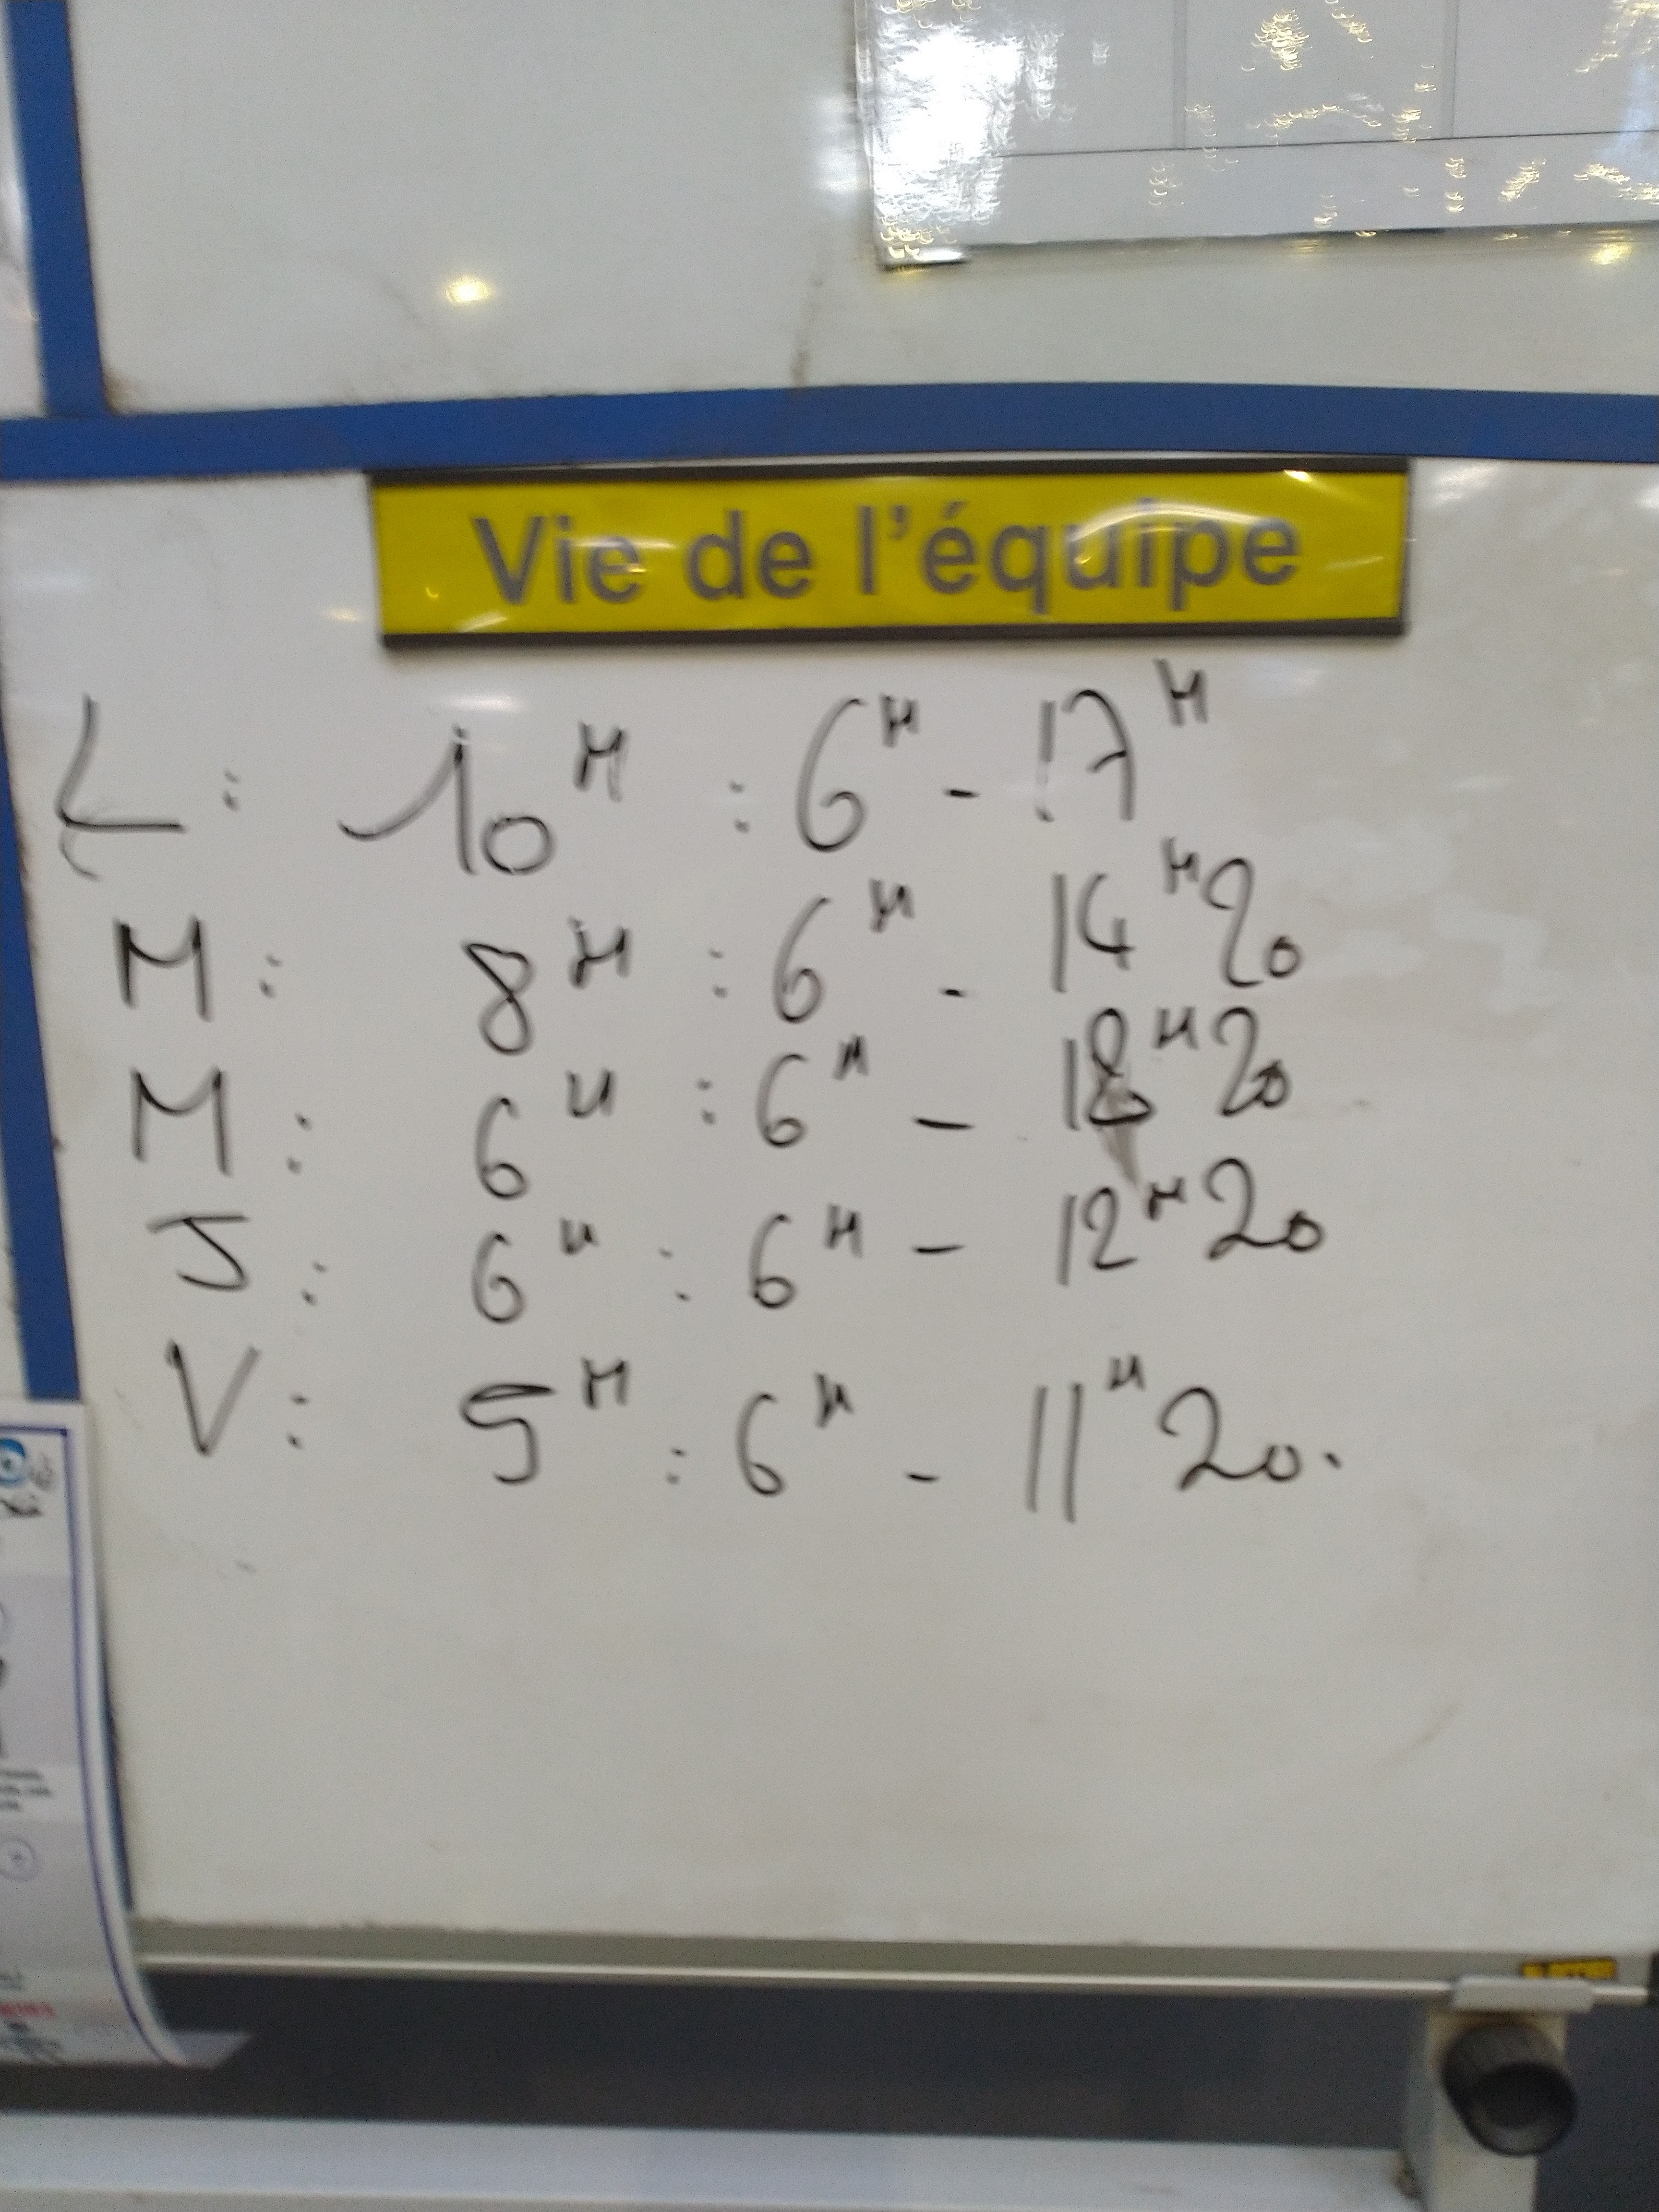 Vie de l'équipe
L: 10H : 6H - 17H
M: 8H : 6H - 14H20
M: 6H : 6H - 12H20
J: 6H : 6H - 12H20
V: 5H : 6H - 11H20.